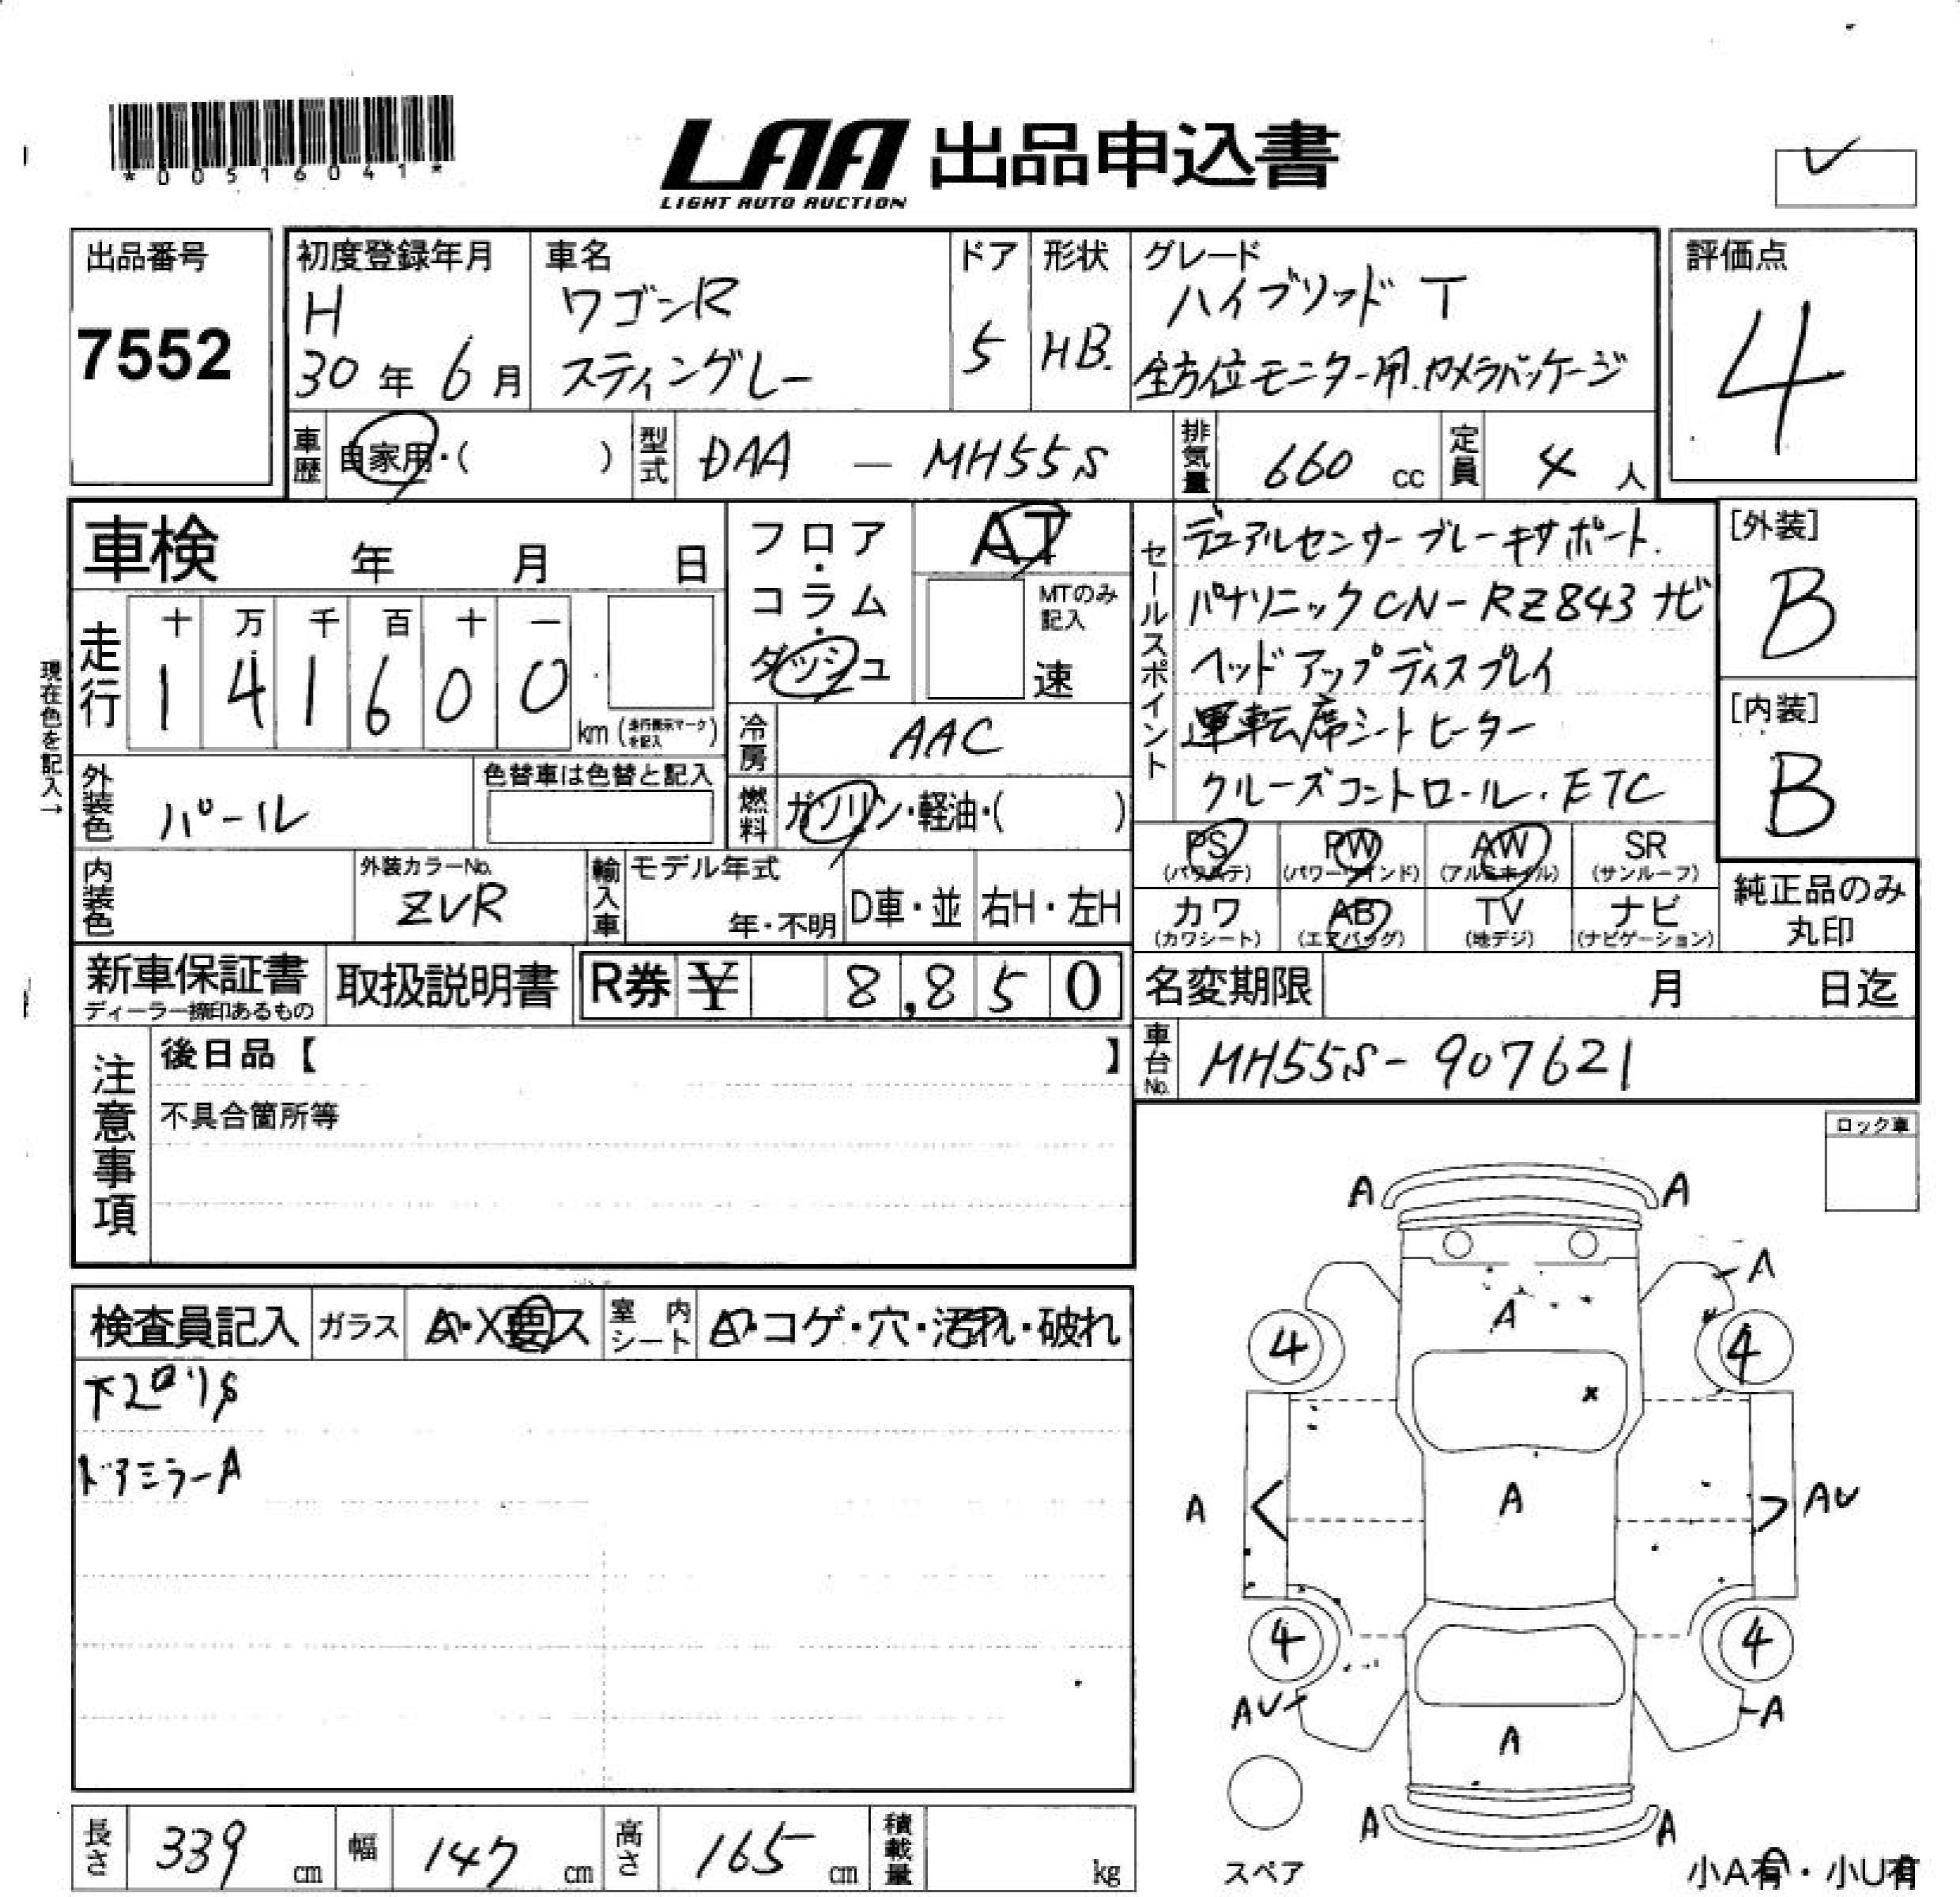 *00516041*
LAA 出品申込書
LIGHT AUTO AUCTION
出品番号
7552
初度登録年月
H
30年6月
車名
ワゴンR
スティングレー
ドア
5
形状
HB.
グレード
ハイブリッド T
全方位モニター用カメラパッケージ
評価点
4
車歴
自家用・( )
型式
DAA — MH55S
排気量
660 cc
定員
4 人
車検 年 月 日
フロア・コラム・ダッシュ
AT
MTのみ記入
速
走行
十 万 千 百 十 一
1 4 1 6 0 0
km(走行表示マークを記入)
現在色を記入→
冷房
AAC
外装色
パール
色替車は色替と記入
燃料
ガソリン・軽油・( )
セールスポイント
デュアルセンサーブレーキサポート.
パナソニックCN-RZ843ナビ
ヘッドアップディスプレイ
運転席シートヒーター
クルーズコントロール.ETC
[外装]
B
[内装]
B
PS
(パワステ)
PW
(パワーウインド)
AW
(アルミホイル)
SR
(サンルーフ)
カワ
(カワシート)
AB
(エアバッグ)
TV
(地デジ)
ナビ
(ナビゲーション)
純正品のみ
丸印
内装色
外装カラーNo.
ZVR
輸入車
モデル年式
年・不明
D車・並
右H・左H
新車保証書
ディーラー捺印あるもの
取扱説明書
R券 ¥ 8,850
名変期限 月 日迄
車台No.
MH55S-907621
注意事項
後日品【 】
不具合箇所等
ロック車
検査員記入
ガラス
A・X要ス
室内シート
A・コゲ・穴・汚れ・破れ
ドアミラーA
A A
A
A
4 4
A
A
AU
4 4
AU
A
A
A A
スペア
小A有・小U有
長さ
339 cm
幅
147 cm
高さ
165 cm
積載量
kg